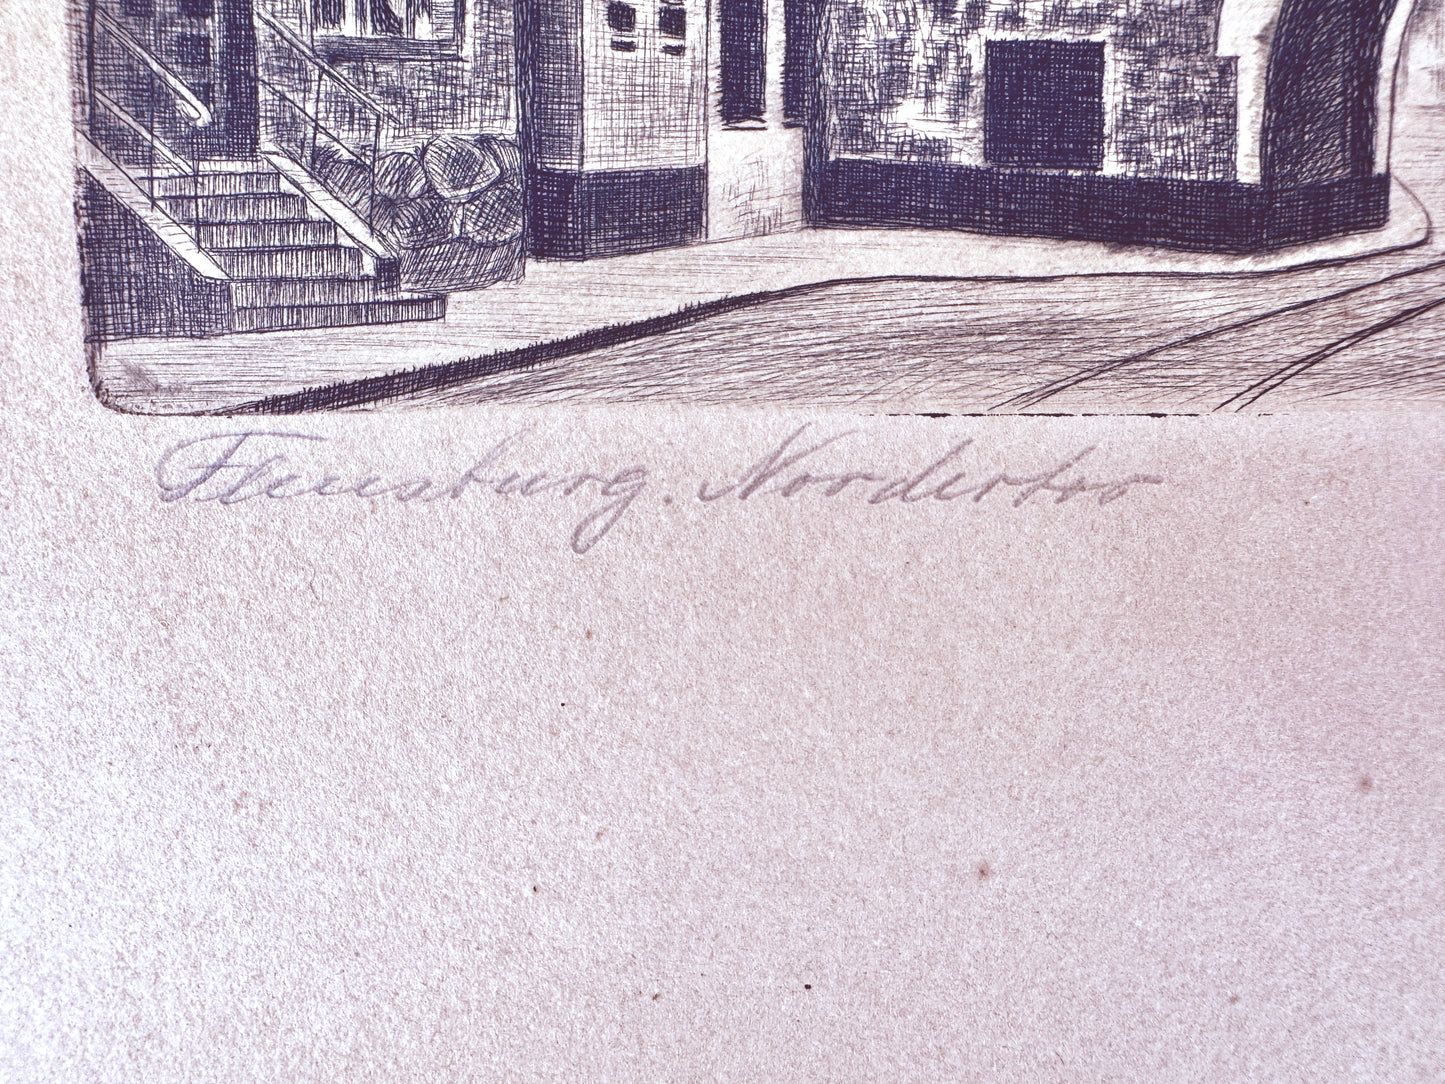 Flensburg. Nordertor